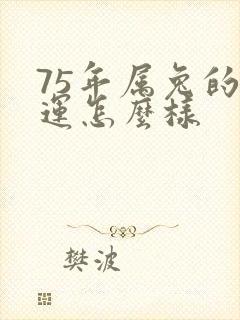 75年属兔的
運怎麼樣
樊波